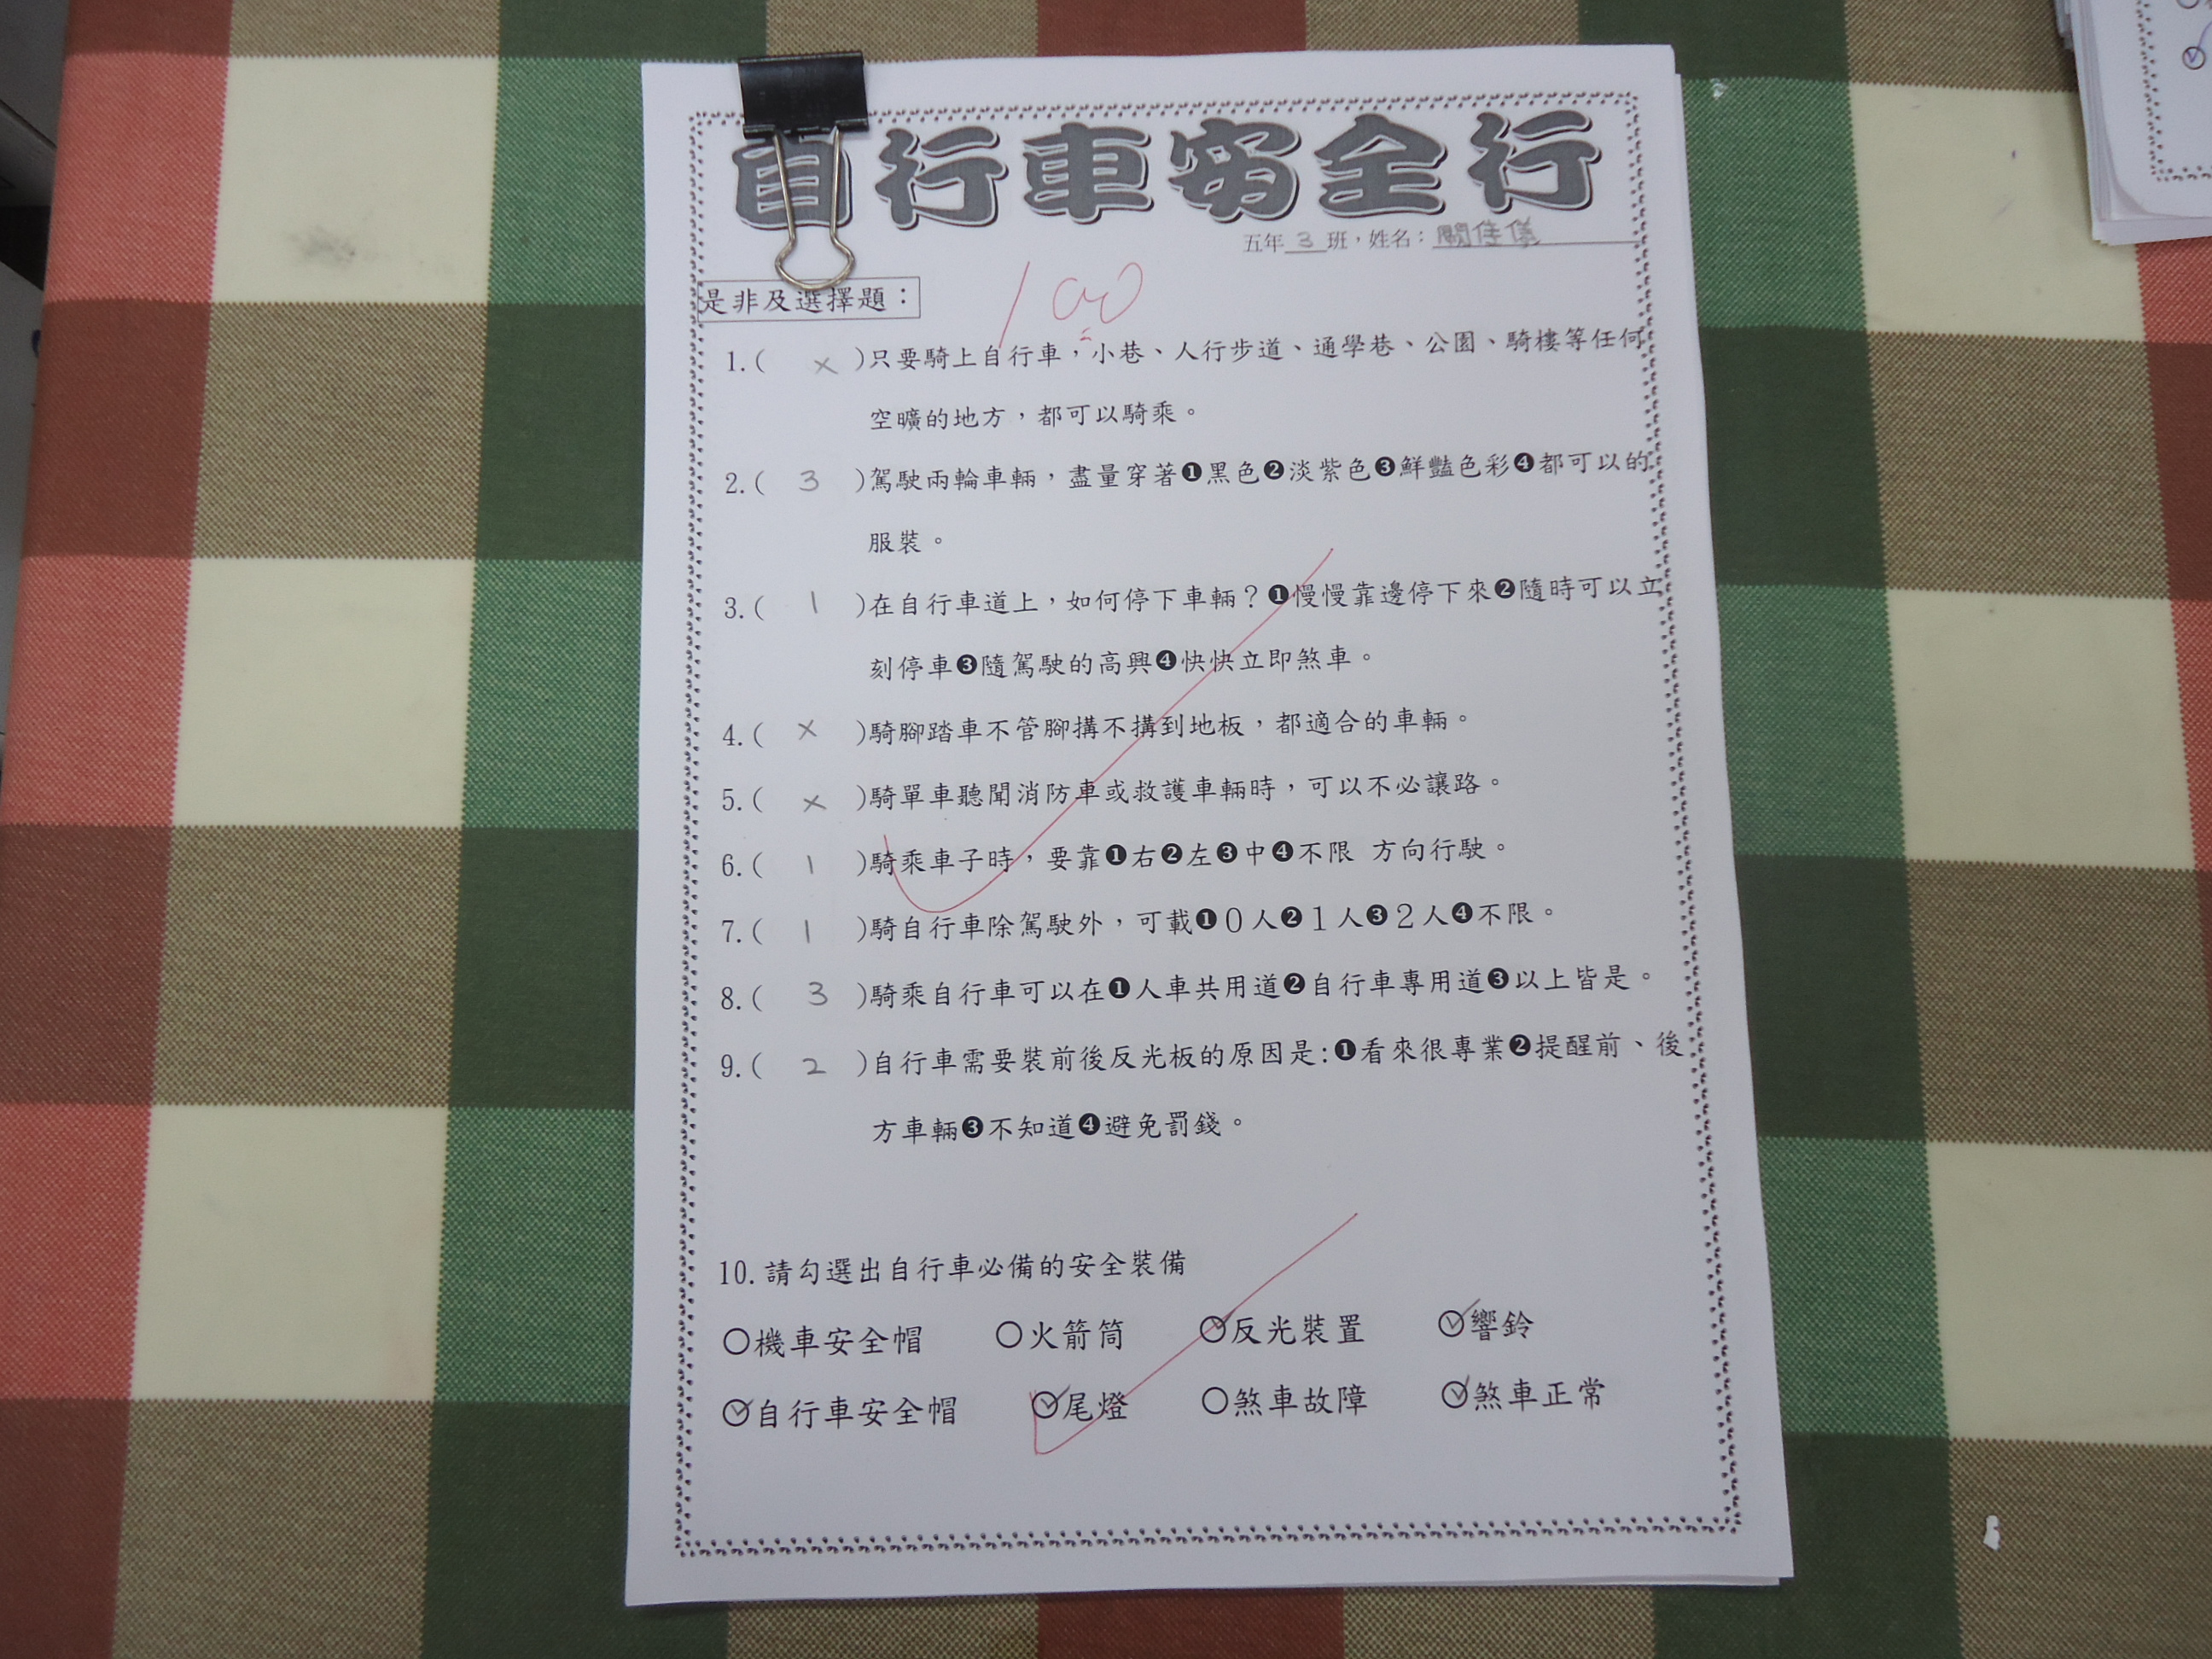 自行車安全行
五年 3 班，姓名：關佳儀
100
是非及選擇題：
1.( × )只要騎上自行車，小巷、人行步道、通學巷、公園、騎樓等任何
空曠的地方，都可以騎乘。
2.( 3 )駕駛兩輪車輛，盡量穿著❶黑色❷淡紫色❸鮮豔色彩❹都可以的
服裝。
3.( 1 )在自行車道上，如何停下車輛？❶慢慢靠邊停下來❷隨時可以立
刻停車❸隨駕駛的高興❹快快立即煞車。
4.( × )騎腳踏車不管腳搆不搆到地板，都適合的車輛。
5.( × )騎單車聽聞消防車或救護車輛時，可以不必讓路。
6.( 1 )騎乘車子時，要靠❶右❷左❸中❹不限 方向行駛。
7.( 1 )騎自行車除駕駛外，可載❶0人❷1人❸2人❹不限。
8.( 3 )騎乘自行車可以在❶人車共用道❷自行車專用道❸以上皆是。
9.( 2 )自行車需要裝前後反光板的原因是:❶看來很專業❷提醒前、後
方車輛❸不知道❹避免罰錢。
10.請勾選出自行車必備的安全裝備
○機車安全帽 ○火箭筒 ○反光裝置 ○響鈴
○自行車安全帽 ○尾燈 ○煞車故障 ○煞車正常